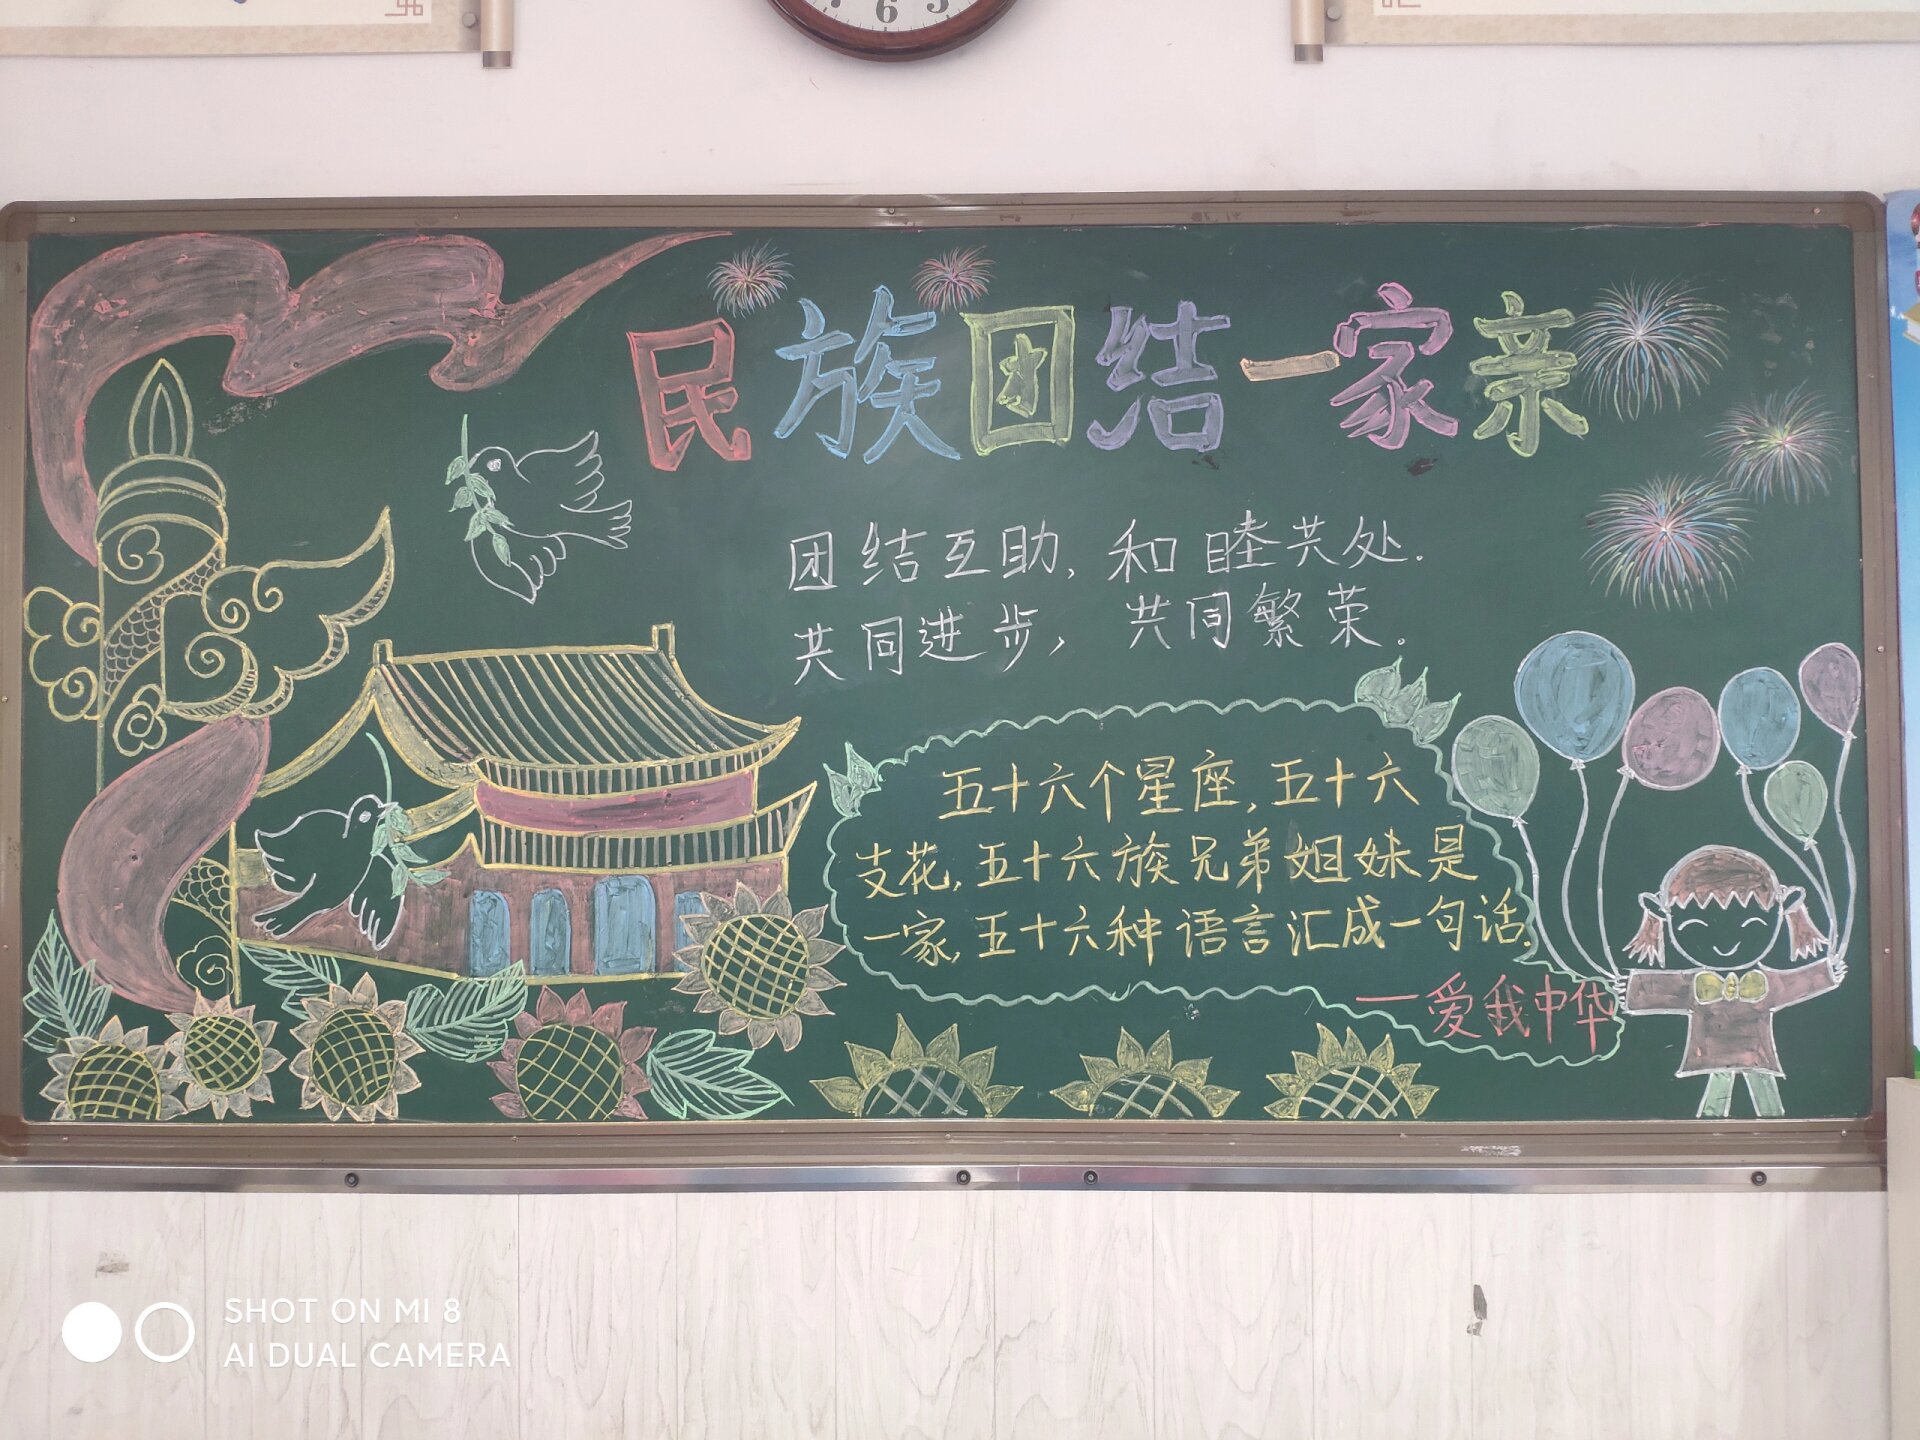 6
5
民族团结一家亲
团结互助,和睦共处.
共同进步,共同繁荣。
五十六个星座,五十六
支花,五十六族兄弟姐妹是
一家,五十六种语言汇成一句话.
一爱我中华
SHOT ON MI 8
AI DUAL CAMERA